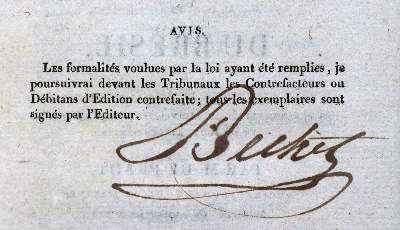 AVIS.
LES formalités voulues par la loi ayant été remplies, je
poursuivrai devant les Tribunaux les Contrefacteurs ou
Débitans d'Edition contrefaite; tous les exemplaires sont
signés par l'Editeur.
Bechet